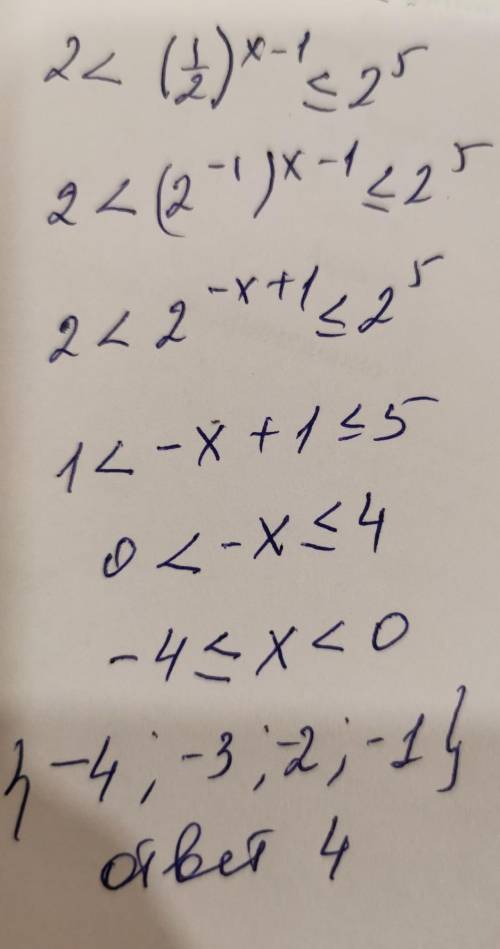 2 < (1/2)^{x-1} ≤ 2^5
2 < (2^{-1})^{x-1} ≤ 2^5
2 < 2^{-x+1} ≤ 2^5
1 < -x + 1 ≤ 5
0 < -x ≤ 4
-4 ≤ x < 0
{-4; -3; -2; -1}
ответ 4